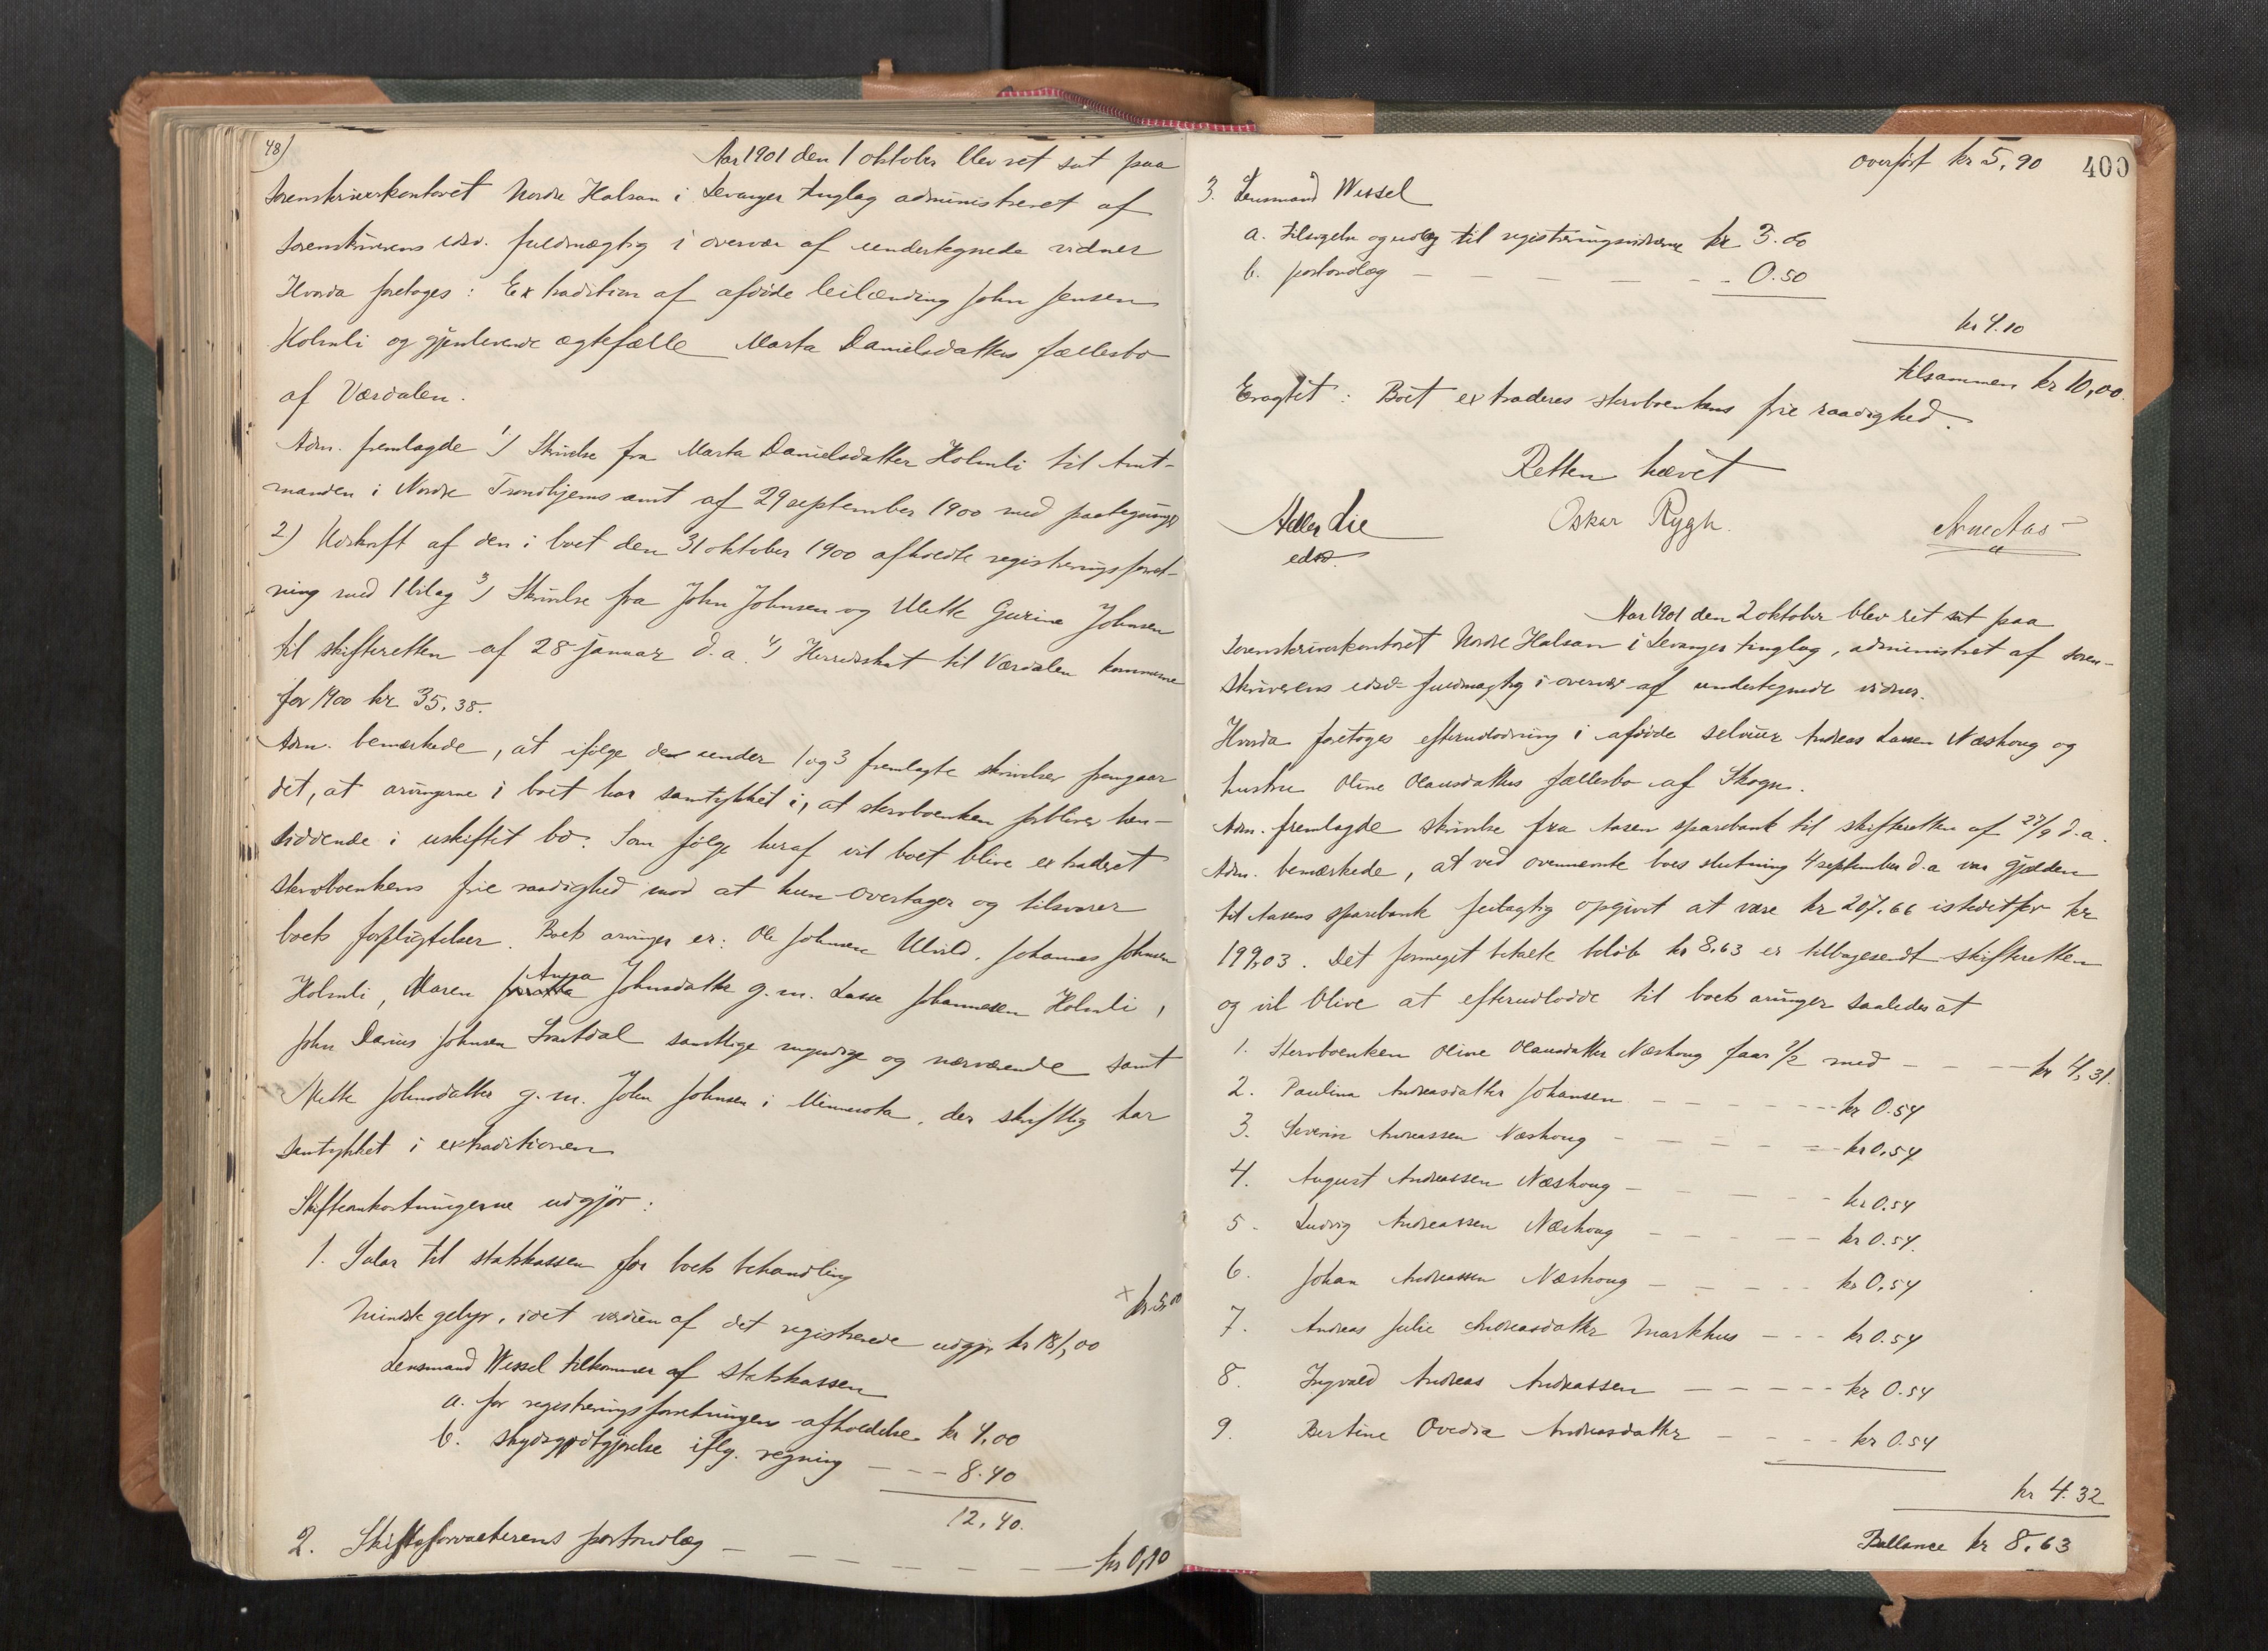 48)
Aar 1901 den 1 oktober blev ret sat paa
Sorenskriverkontoret Nordre Halsan i Levanger tinglag administreret af
sorenskriverens edsv. fuldmægtig i overvær af undertegnede vidner
Hvorda foretoges: Extradition af afdøde leilænding John Jensen
Holmli og gjenlevende ægtefælle Marta Danielsdatters fællesbo
af Værdalen.
Adm. fremlagde 1) Skrivelse fra Marta Danielsdatter Holmli til Amt-
manden i Nordre Trondhjems amt af 29 september 1900 med paategninger
2) Udskrift af den i boet den 31 oktober 1900 afholdte registreringsforret-
ning med 1 bilag 3) Skrivelse fra John Johnsen og Mette Gurine Johnsen
til skifteretten af 28 januar d.a. 4) Herredsskat til Værdalen kommune
for 1900 kr 35.38.
Adm. bemærkede, at ifølge de under 1 og 3 fremlagte skrivelser fremgaar
det, at arvingerne i boet har samtykket i, at sterboenken forbliver hen-
siddende i uskiftet bo. Som følge heraf vil boet blive extraderet
sterboenkens frie raadighed mod at hun overtager og tilsvarer
boets forpligtelser. Boets arvinger er: Ole Johnsen Ulvild, Johannes Johnsen
Holmli, Maren Anna Johnsdatter g.m. Lasse Johannesen Holmli,
John Darius Johnsen Svartdal samtlige myndige og nærværende samt
Mette Johnsdatter g.m. John Johnsen i Minnesota, der skriftlig har
samtykket i extraditionen
Skifteomkostningerne udgjør:
1. Salær til statskassen for boets behandling
mindste gebyr, idet værdien af det registrerede udgjør kr 181,00 × kr. 5,00
Lensmand Wessel tilkommer af statskassen
a. for registreringsforretningens afholdelse kr 4,00
b. skydsgodtgjørelse iflg. regning - - - 8.40
12,40.
2. Skifteforvalterens portoudlæg - - - - - kr 0,90
overført kr 5,90 400
3. Lensmand Wessel
a. tilsigelse og udlæg til registreringsvidnerne kr 3.60
b. portoudlæg - - - - - 0.50
kr 4.10
tilsammen kr 10,00.
Eragtet: Boet extraderes sterboenkens frie raadighed.
Retten hævet
Adler Lie Oskar Rygh. Arne Aas
edsv.
Aar 1901 den 2 oktober blev ret sat paa
Sorenskriverkontoret Nordre Halsan i Levanger tinglag, administreret af soren-
skriverens edsv. fuldmægtig i overvær af undertegnede vidner.
Hvorda foretoges efterudlodning i afdøde selveier Andreas Larsen Næshoug og
hustru Oline Olausdatters fællesbo af Skogn.
Adm. fremlagde skrivelse fra Aasen sparebank til skifteretten af 27/9 d.a.
Adm. bemærkede, at ved ovennævnte boes slutning 4 september d.a var gjælden
til Aasens sparebank feilagtig opgivet at være kr 207.66 istedetfor kr
199,03. Det formeget betalte beløb kr 8,63 er tilbagesendt skifteretten
og vil blive at efterudlodde til boets arvinger saaledes at
1. Sterboenken Oline Olausdatter Næshoug faar 1/2 med - - - kr 4,31.
2. Paulina Andreasdatter Johansen - - - - - kr 0.54
3. Severin Andreassen Næshoug - - - - - kr 0.54
4. August Andreassen Næshoug - - - - kr 0.54
5. Ludvig Andreassen Næshoug - - - - - kr 0.54.
6. Johan Andreassen Næshoug - - - - kr 0,54
7. Andrea Julie Andreasdatter Markhus - - - kr 0.54
8. Ingvald Andreas Andreassen - - - - - kr 0.54
9. Bertine Ovedia Andreasdatter - - - - kr 0.54
kr 4.32
Ballance kr 8,63